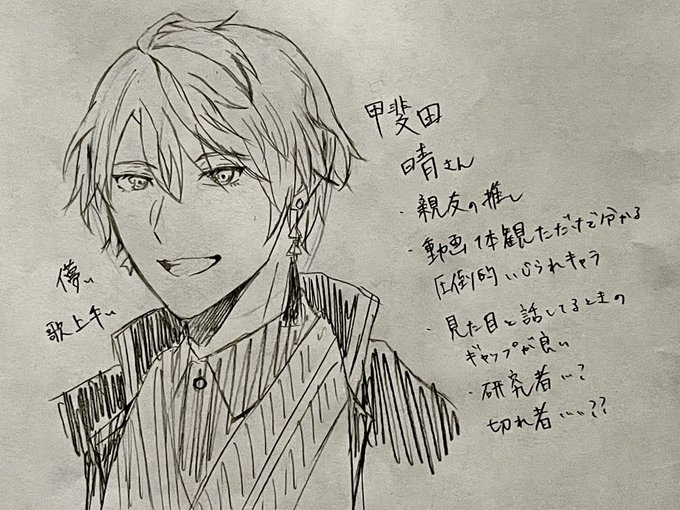 甲斐田
晴さん
・親友の推し
・動画1本観ただけで分かる
圧倒的いじられキャラ
・見た目と話してるときの
ギャップが良い
・研究者…?
切れ者……??
儚い
歌上手い